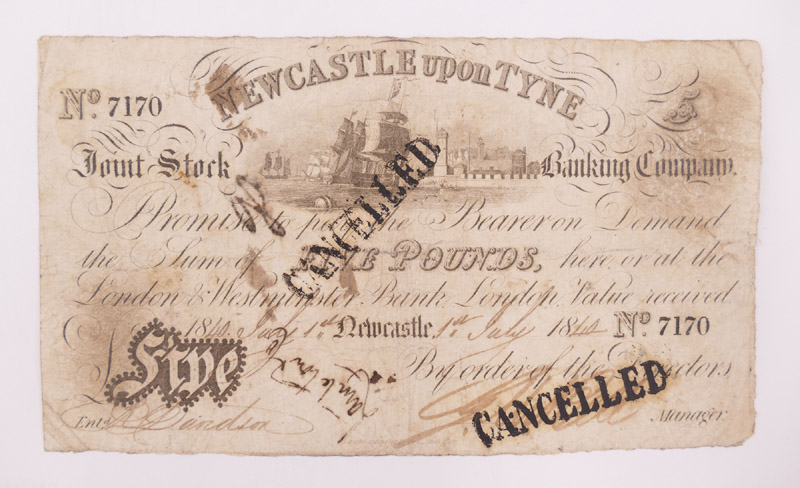 NEWCASTLE upon TYNE
No. 7170
5
Joint Stock Banking Company.
I Promise to pay the Bearer on Demand
the Sum of FIVE POUNDS, here or at the
London & Westminster Bank London, Value received
1840 July 1st Newcastle, 1st July 1840 No. 7170
Five
By order of the Directors
CANCELLED
CANCELLED
Entd. Davidson
Manager